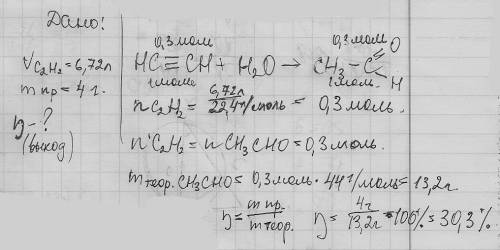 Дано:
V C₂H₂ = 6,72л
m пр = 4 г.
η - ?
(выход)
0,3 моль 0,3 моль
HC≡CH + H₂O → CH₃ - C =O H
1 моль 1 моль
n C₂H₂ = 6,72л / 22,4 г/моль = 0,3 моль.
n C₂H₂ = n CH₃CHO = 0,3 моль.
m теор. CH₃CHO = 0,3 моль · 44 г/моль = 13,2 г
η = m пр. / m теор. η = 4г / 13,2г · 100% = 30,3%